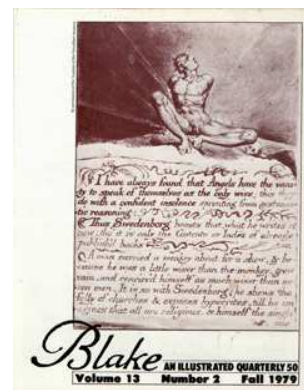 I have always found that Angels have the vani-
ty to speak of themselves as the only wise; this they
do with a confident insolence sprouting from systema-
tic reasoning:
Thus Swedenborg boasts that what he writes is
new; tho it is only the Contents or Index of already
publish'd books
A man carried a monkey about for a shew, & be-
cause he was a little wiser than the monkey, grew
vain, and conceiv'd himself as much wiser than se-
ven men. It is so with Swedenborg; he shews the
folly of churches & exposes hypocrites, till he im-
agines that all are religious, & himself the single
Blake AN ILLUSTRATED QUARTERLY 50
Volume 13 Number 2 Fall 1979